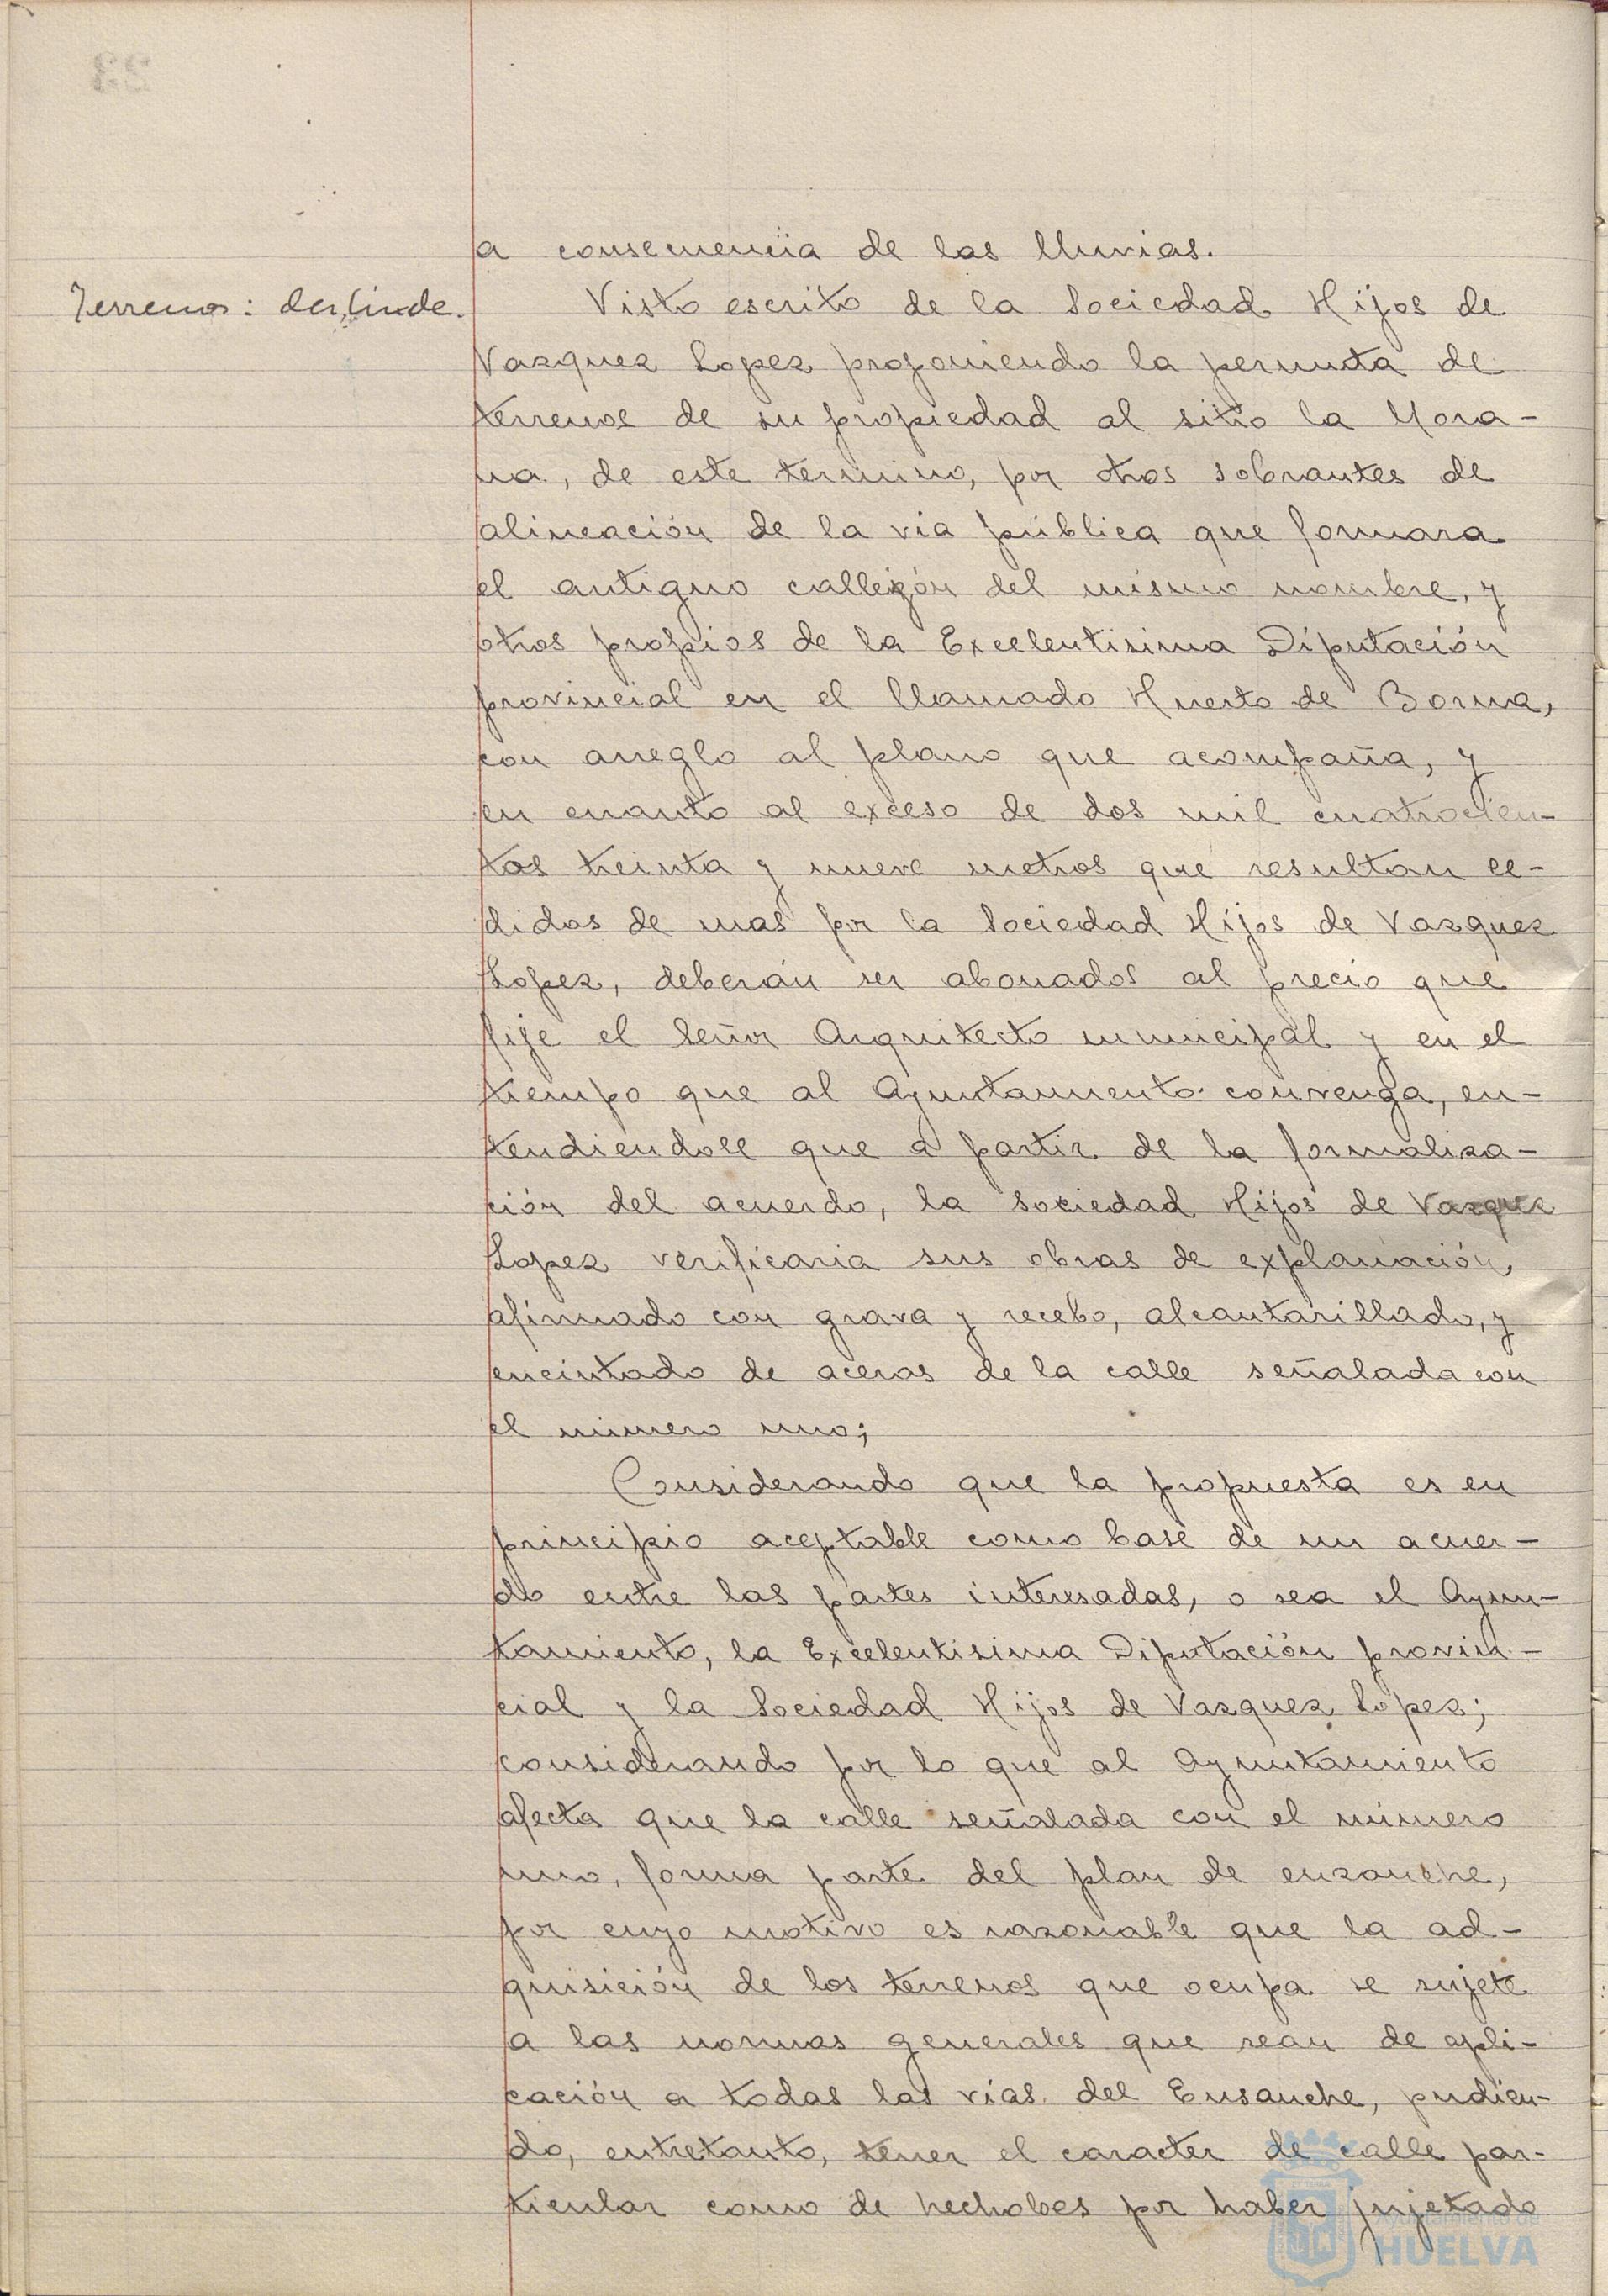 a consecuencia de las lluvias.
Terrenos: deslinde.
Visto escrito de la Sociedad Hijos de
Vazquez Lopez proponiendo la permuta de
terrenos de su propiedad al sitio la Mora-
na, de este termino, por otros sobrantes de
alineación de la via pública que formara
el antiguo callejón del mismo nombre, y
otros propios de la Excelentisima Diputación
provincial en el llamado Huerto de Borna,
con arreglo al plano que acompaña, y
en cuanto al exceso de dos mil cuatrocien-
tos treinta y nueve metros que resultan ce-
didos de mas por la Sociedad Hijos de Vazquez
Lopez, deberán ser abonados al precio que
fije el Señor Arquitecto municipal y en el
tiempo que al Ayuntamiento convenga, en-
tendiendose que a partir de la formaliza-
ción del acuerdo, la Sociedad Hijos de Vazquez
Lopez verificaria sus obras de explanación,
afirmado con grava y recebo, alcantarillado, y
encintado de aceras de la calle señalada con
el número uno;
Considerando que la propuesta es en
principio aceptable como base de un acuer-
do entre las partes interesadas, o sea el Ayun-
tamiento, la Excelentisima Diputación provin-
cial y la Sociedad Hijos de Vazquez López;
considerando por lo que al Ayuntamiento
afecta que la calle señalada con el número
uno, forma parte del plan de ensanche,
por cuyo motivo es razonable que la ad-
quisición de los terrenos que ocupa se sujete
a las normas generales que sean de apli-
cación a todas las vías del Ensanche, pudien-
do, entretanto, tener el caracter de calle par-
ticular como de hecho es por haber sujetado
Ayuntamiento de
HUELVA